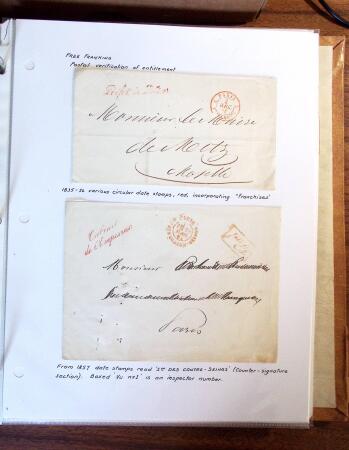 FREE FRANKING
Postal verification of entitlement
PARIS
Monsieur le Maire
de Metz
Moselle
1835-56 various circular date stamps, red, incorporating "franchises"
Cabinet
de l'Empereur
PARIS
Monsieur
Paris
From 1857 date stamps read 'Son DES CONTRE-SEINGS' (Counter-signature
section). Boxed 'Vu No1' is an inspector number.